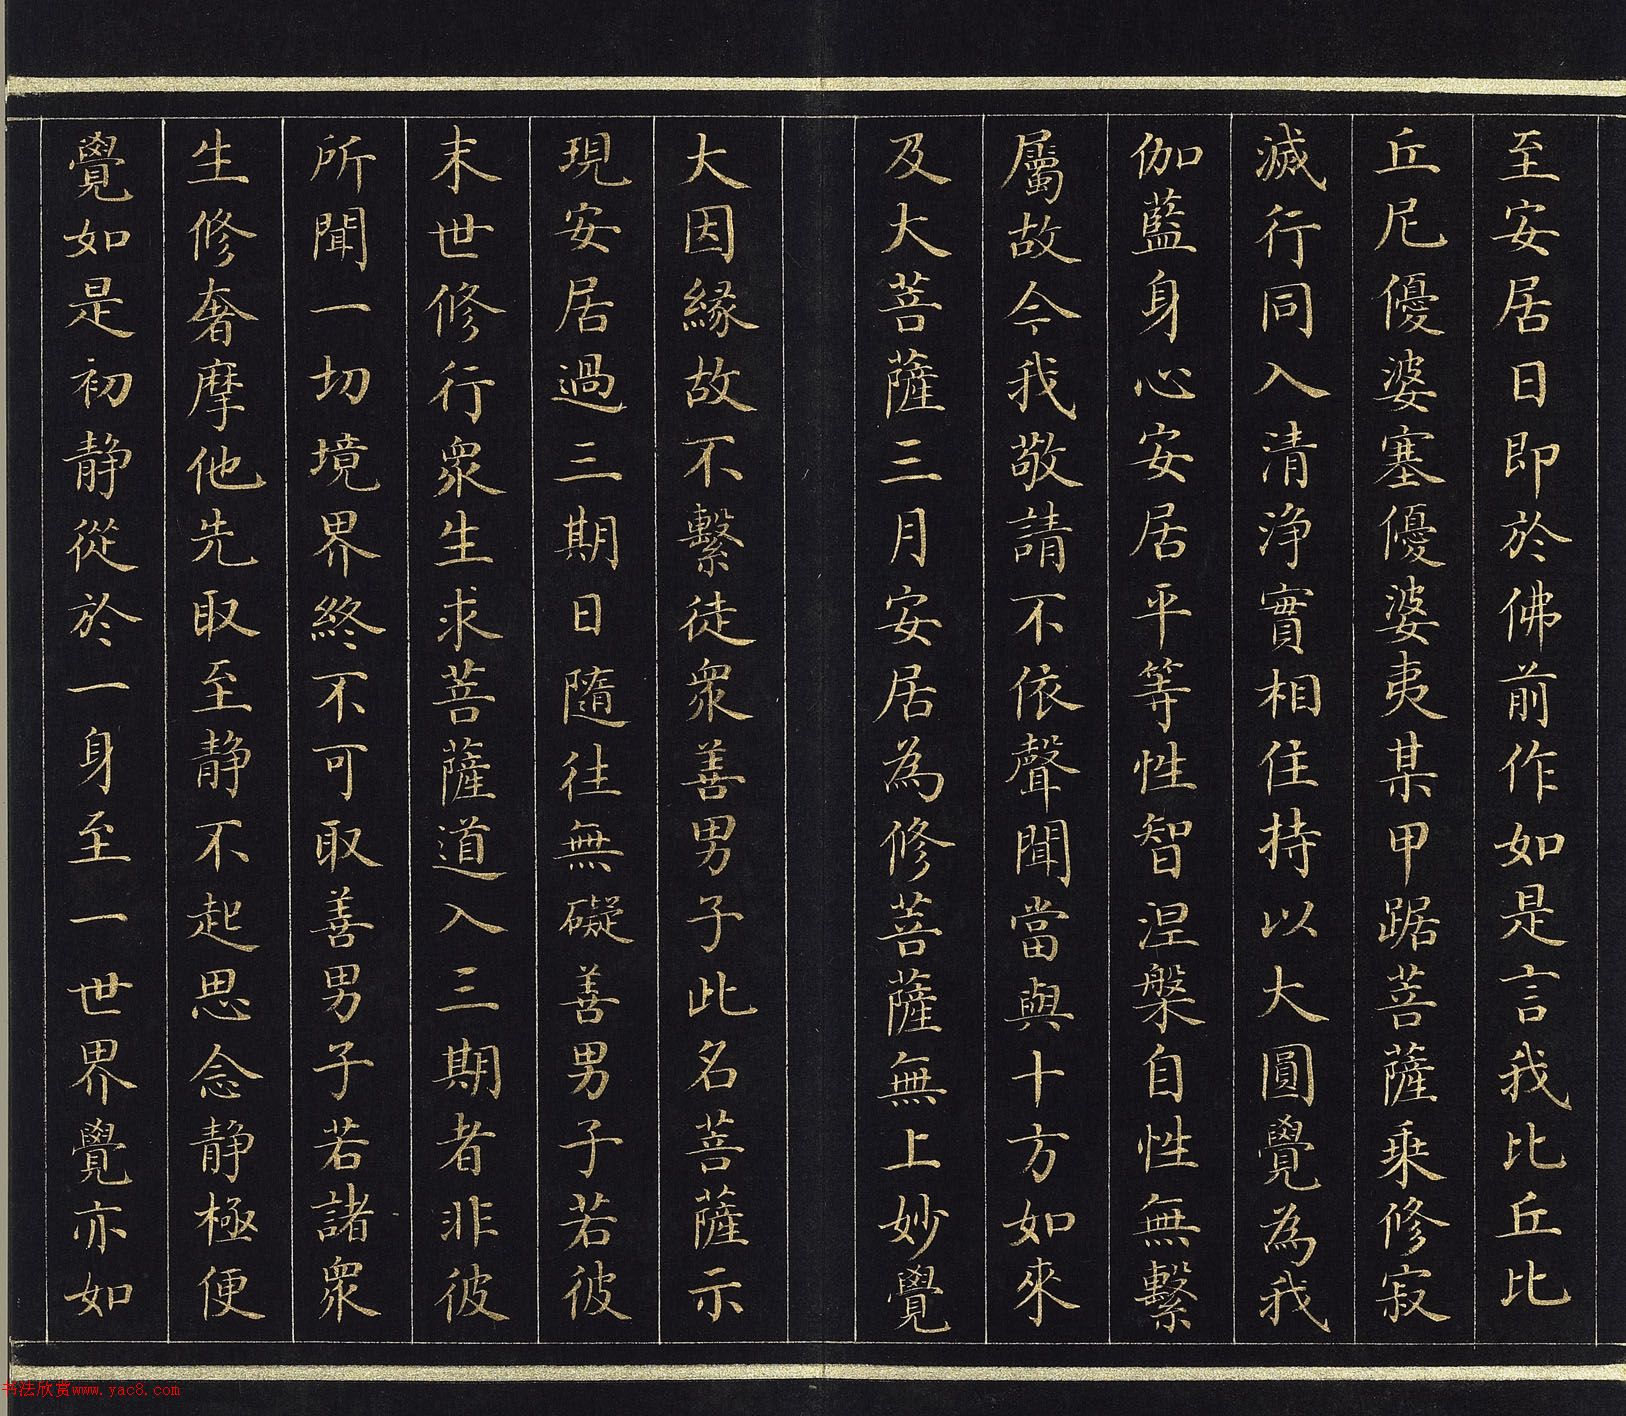 至安居日即於佛前作如是言我比丘比
丘尼優婆塞優婆夷某甲踞菩薩乗修寂
滅行同入清淨實相住持以大圓覺為我
伽藍身心安居平等性智涅槃自性無繫
屬故今我敬請不依聲聞當與十方如來
及大菩薩三月安居為修菩薩無上妙覺
大因緣故不繫徒衆善男子此名菩薩示
現安居過三期日隨往無礙善男子若彼
末世修行衆生求菩薩道入三期者非彼
所聞一切境界終不可取善男子若諸衆
生修奢摩他先取至静不起思念静極便
覺如是初静從於一身至一世界覺亦如
书法欣赏www.yac8.com